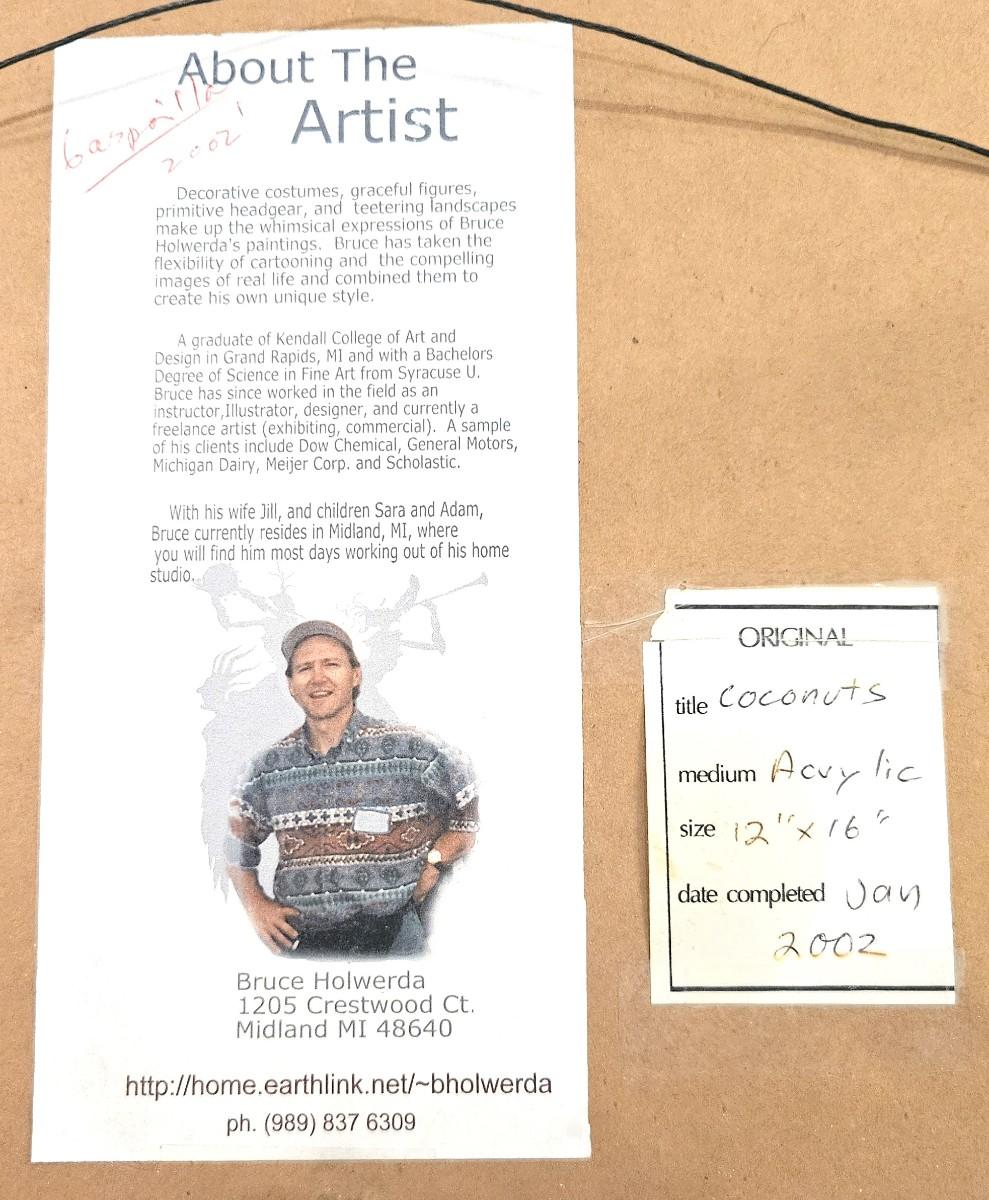 About The
Artist
Gasparilla
2002'
Decorative costumes, graceful figures,
primitive headgear, and teetering landscapes
make up the whimsical expressions of Bruce
Holwerda's paintings. Bruce has taken the
flexibility of cartooning and the compelling
images of real life and combined them to
create his own unique style.
A graduate of Kendall College of Art and
Design in Grand Rapids, MI and with a Bachelors
Degree of Science in Fine Art from Syracuse U.
Bruce has since worked in the field as an
instructor,Illustrator, designer, and currently a
freelance artist (exhibiting, commercial). A sample
of his clients include Dow Chemical, General Motors,
Michigan Dairy, Meijer Corp. and Scholastic.
With his wife Jill, and children Sara and Adam,
Bruce currently resides in Midland, MI, where
you will find him most days working out of his home
studio.
Bruce Holwerda
1205 Crestwood Ct.
Midland MI 48640
http://home.earthlink.net/~bholwerda
ph. (989) 837 6309
ORIGINAL
title Coconuts
medium Acrylic
size 12" x 16"
date completed Jan
2002